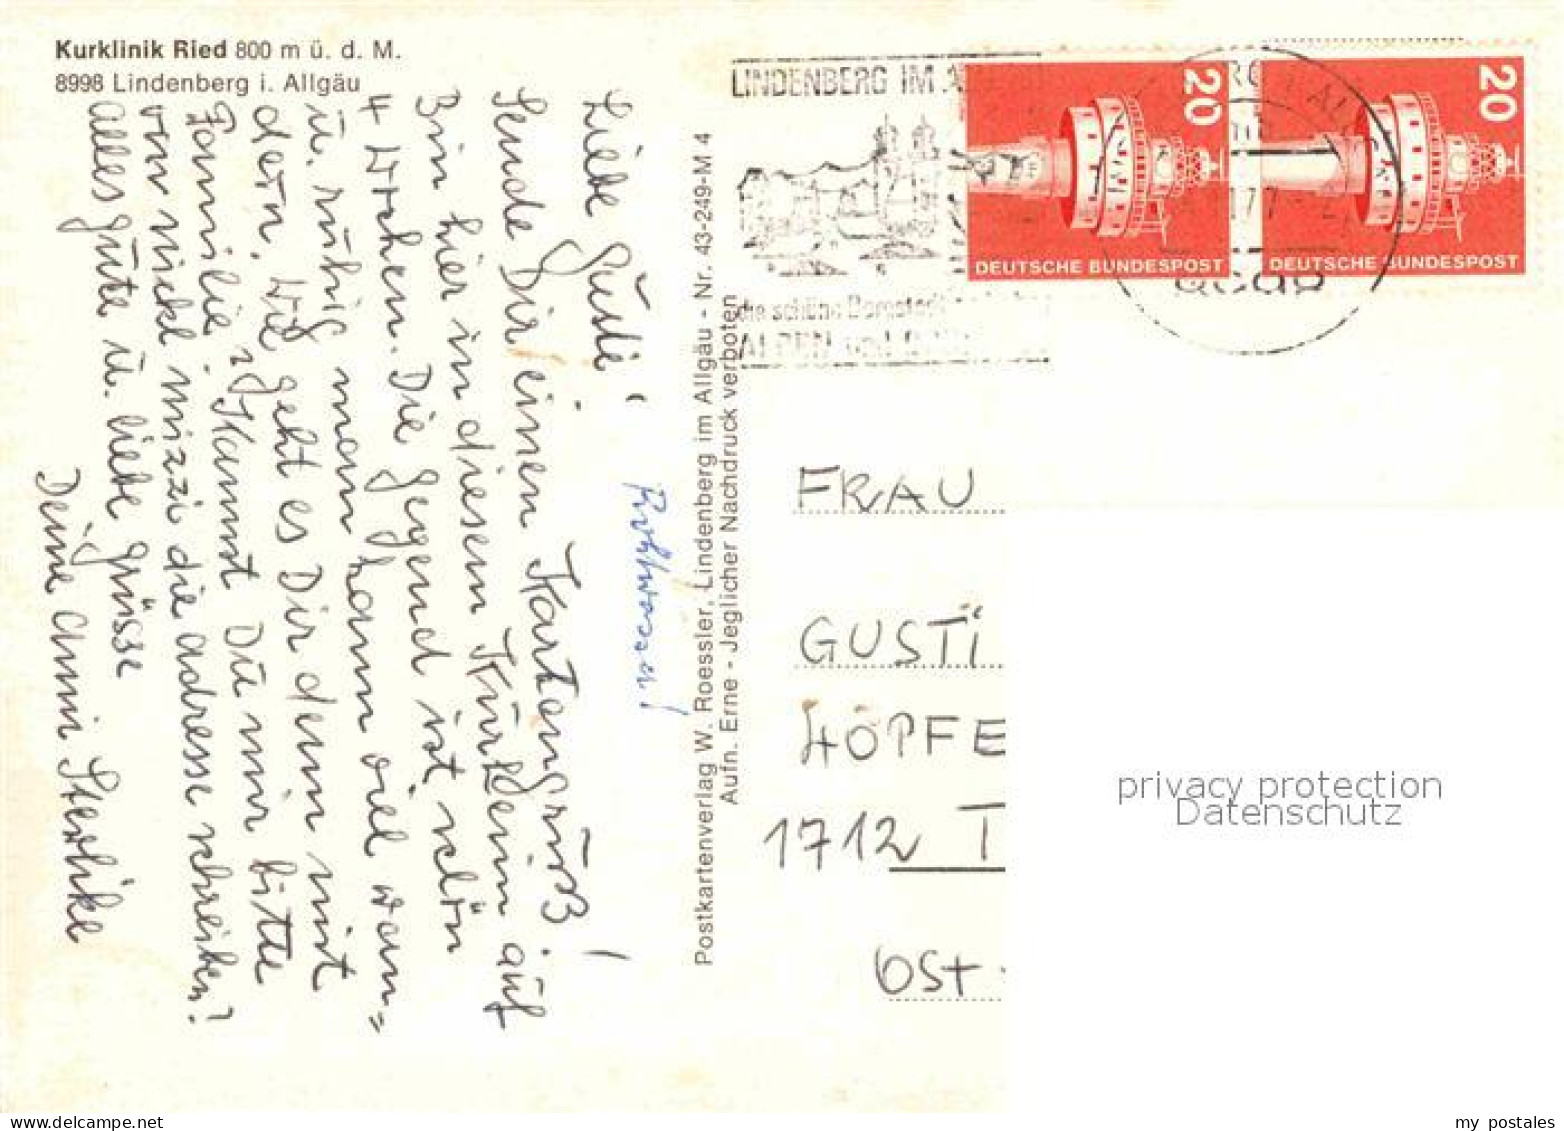 Kurklinik Ried 800 m ü. d. M.
8998 Lindenberg i. Allgäu
Liebe Gusti!
Sende Dir einen Kartengruß!
Bin hier in diesem Kurheim auf
4 Wochen. Die Gegend ist schön
u. ruhig man kann viel wan=
dern. Wie geht es Dir denn mit
Familie? Kannst Du mir bitte
von Nickl Mizzi die Adresse schreiben?
Alles Gute u. liebe Grüsse
Deine Anni
Postkartenverlag W. Roessler, Lindenberg im Allgäu - Nr. 43-249-M 4
Aufn. Erne - Jeglicher Nachdruck verboten
LINDENBERG IM
die schöne Bergstadt
ALPEN und
20
DEUTSCHE BUNDESPOST
20
DEUTSCHE BUNDESPOST
FRAU
GUSTI
HÖPFE
1712 T
OST-
privacy protection
Datenschutz
delcampe.net
my_postales